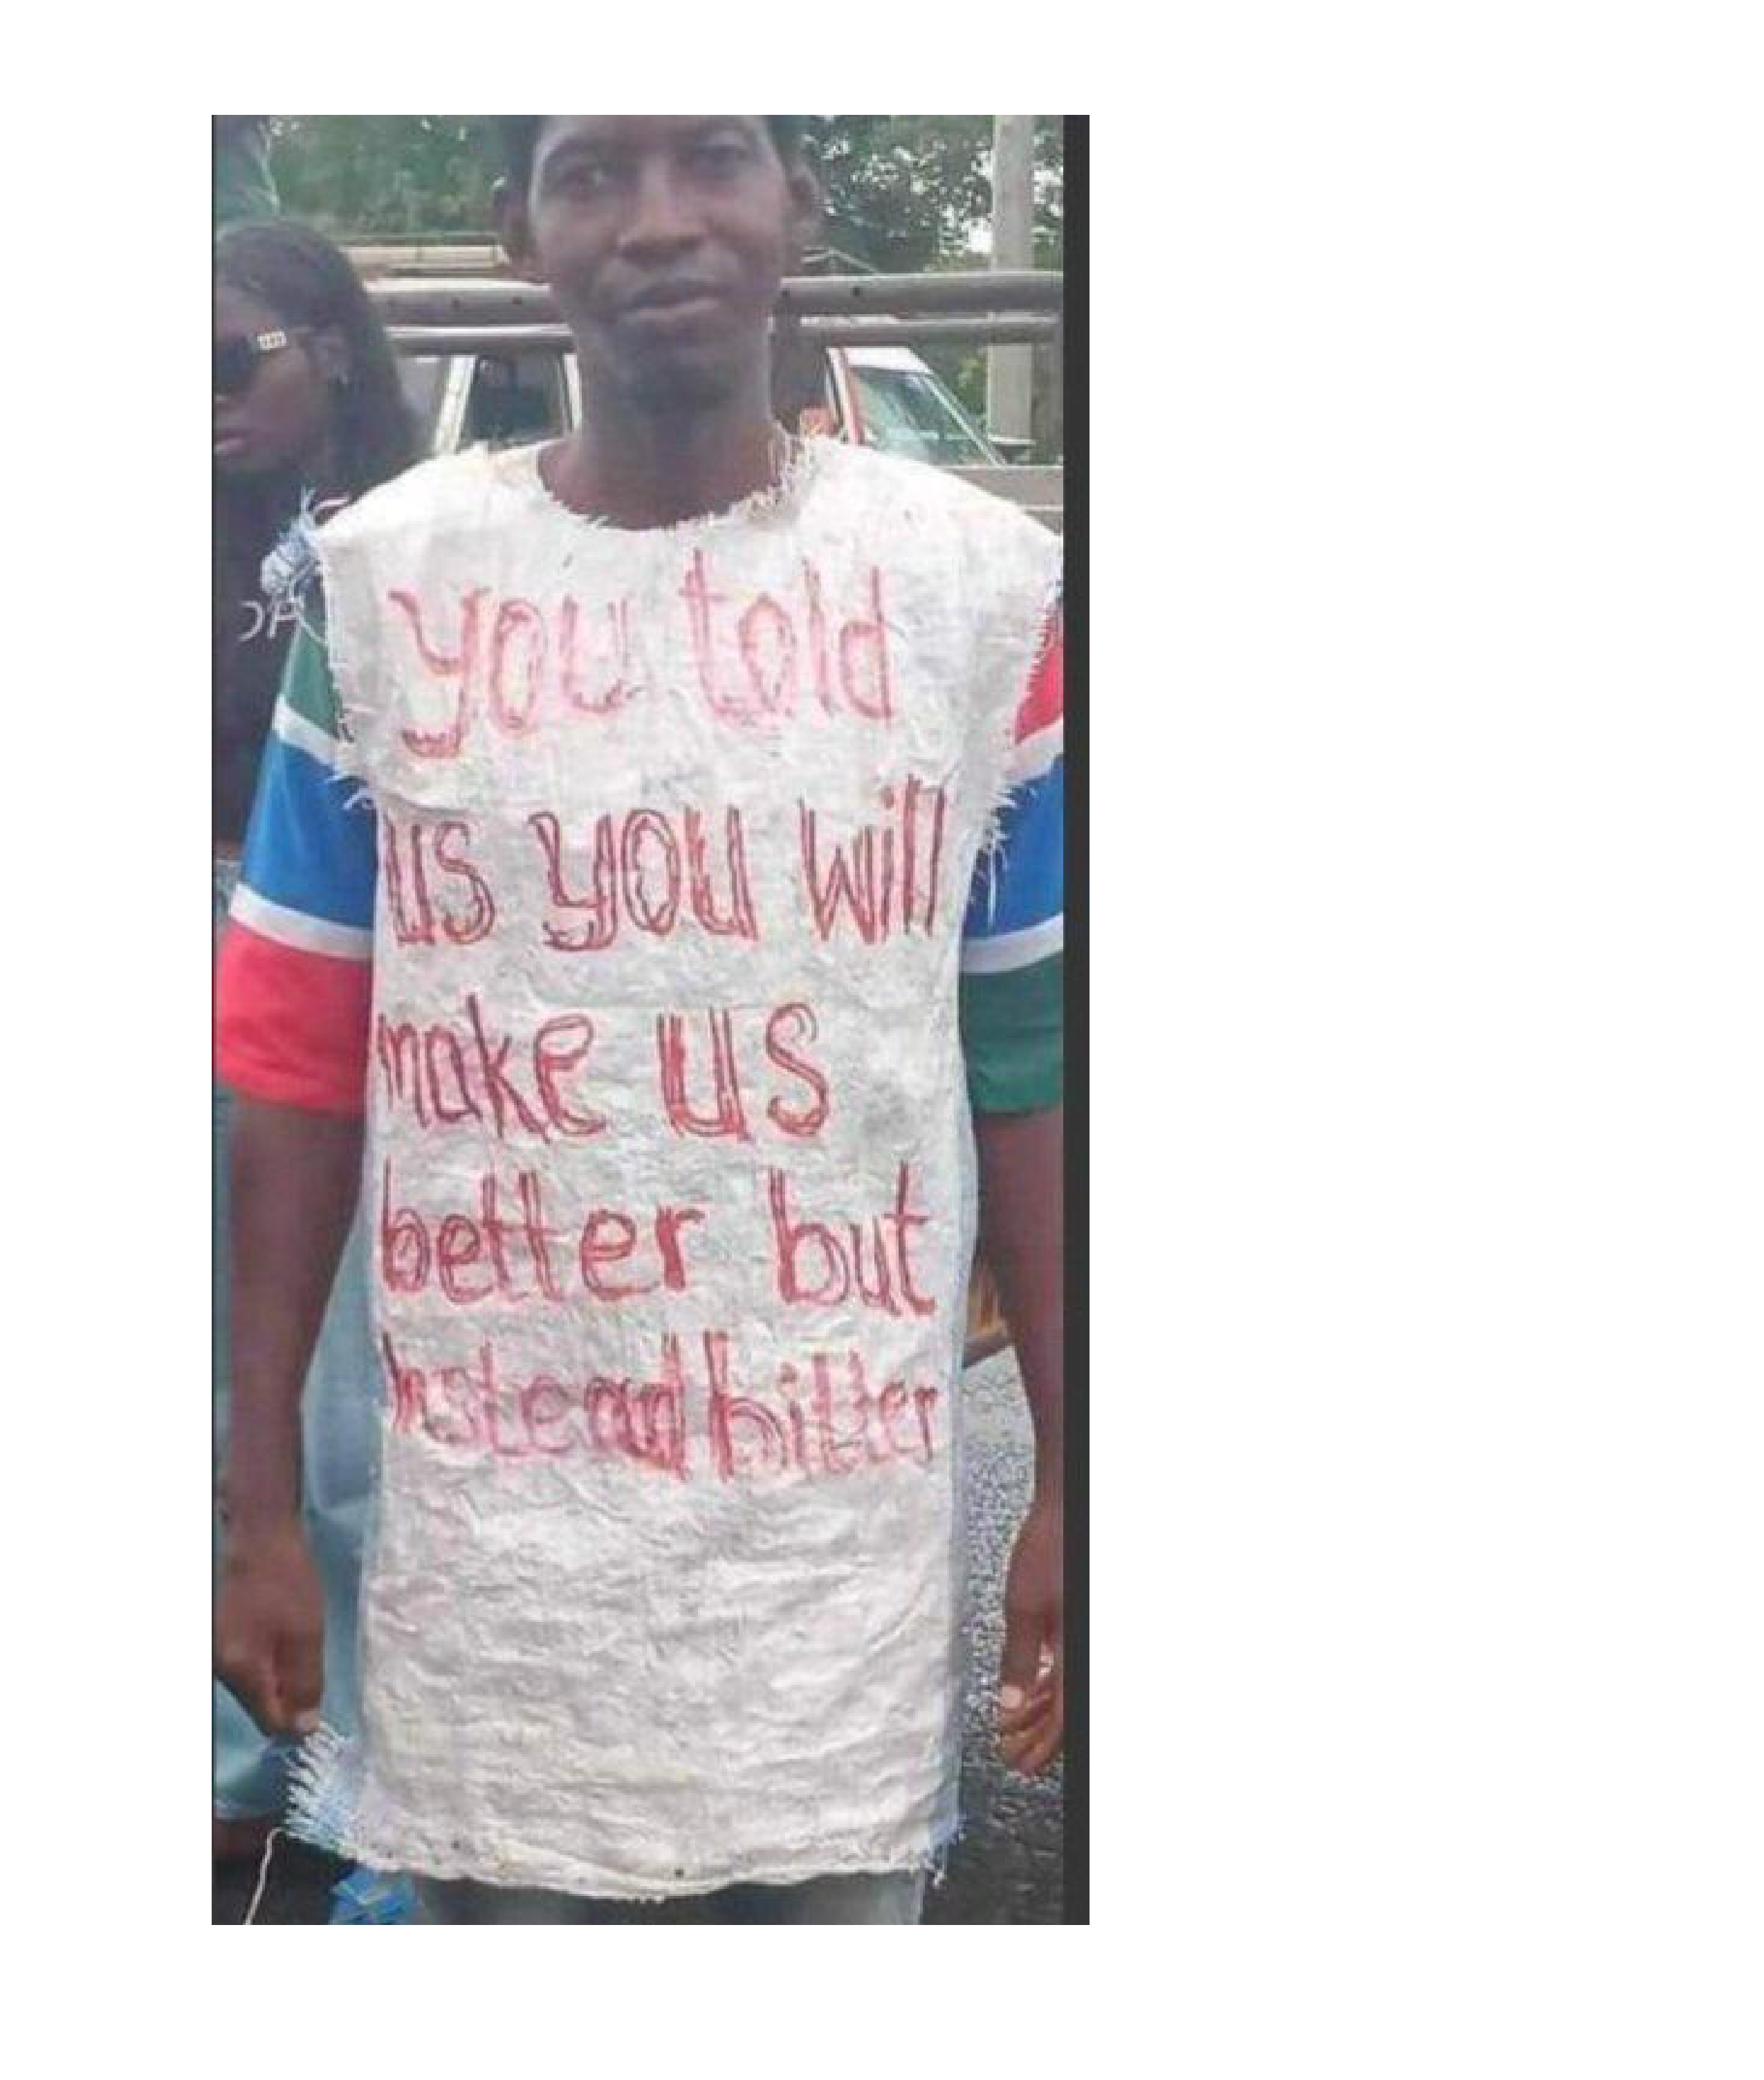 you told
us you will
make us
better but
instead bitter